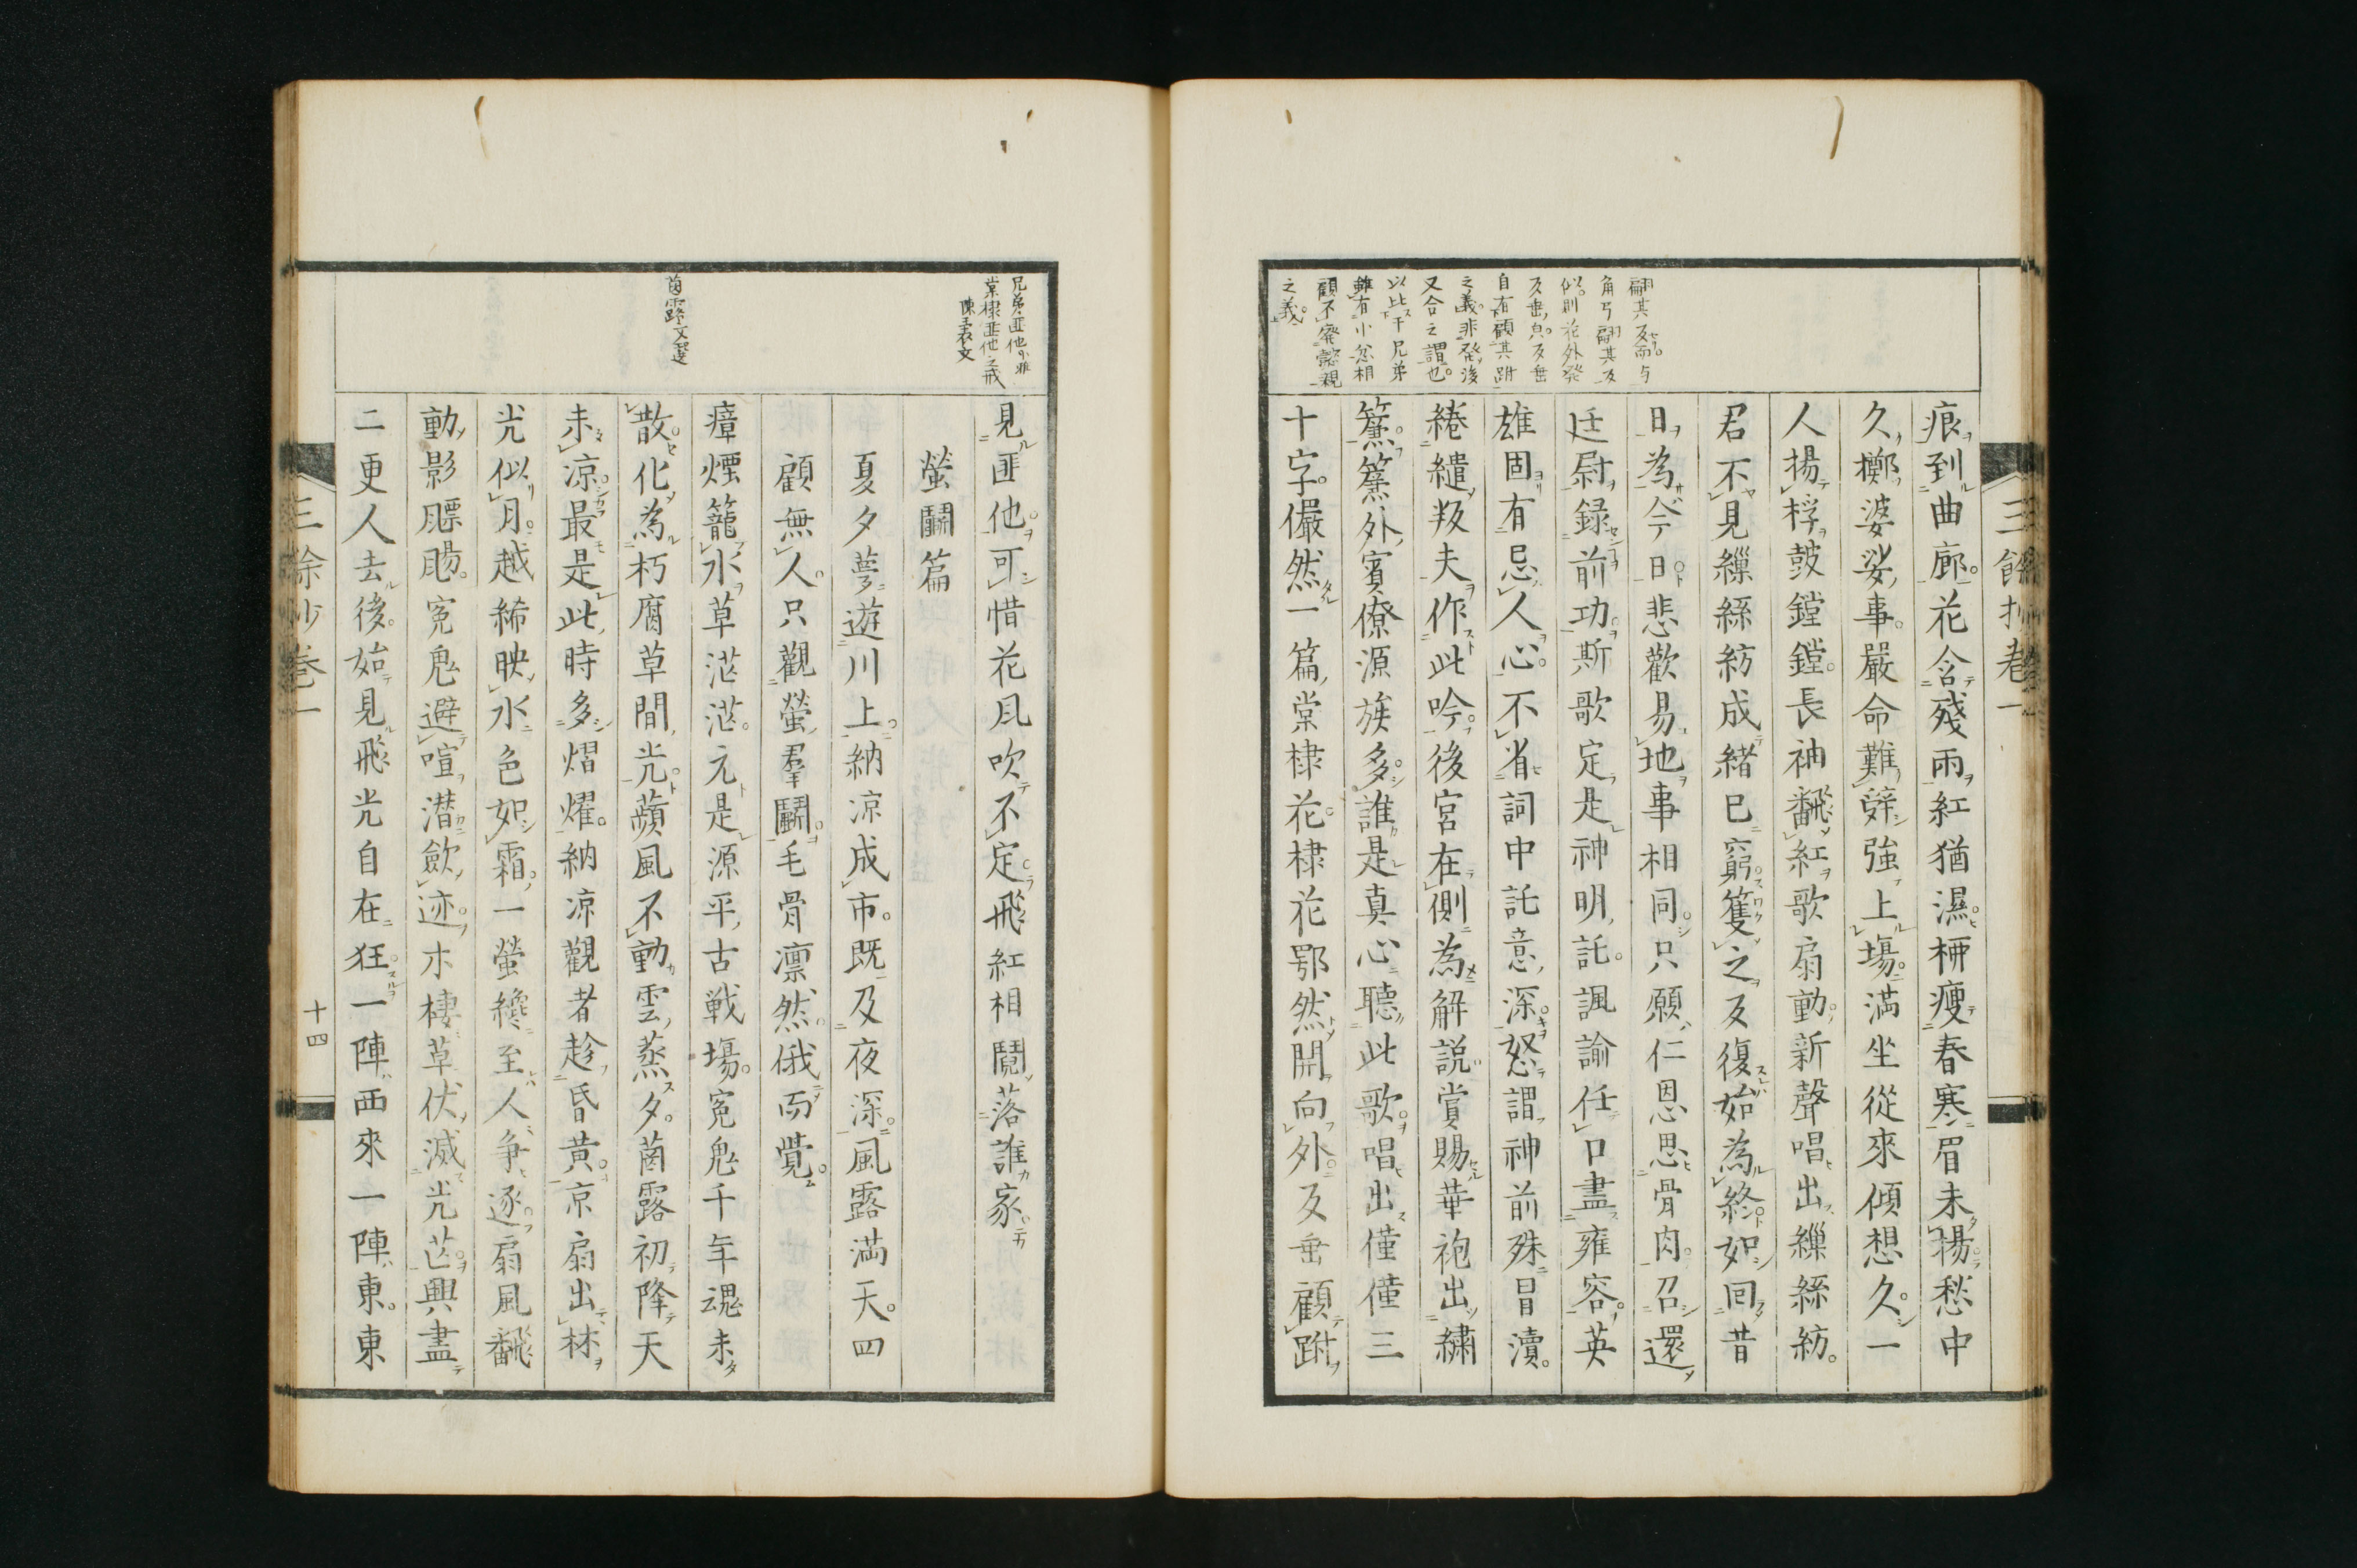 三餘抄卷一
翩其反而与
角弓翩其反
似。則花外發
反垂。只反垂
自有顧其跗
之義。非發後
又合之謂也。
以比于兄弟
雖有小忿相
顧不廢懿親
之義。
痕到曲廊。花含殘雨紅猶濕。柳瘦春寒眉未揚愁中
久擲婆娑事。嚴命難辭強上場。満坐從來傾想久。一
人揚桴鼓鏜鏜。長袖飜紅歌扇動新聲唱出繅絲紡。
君不見繅絲紡成緒已窮籰之反復始為終如回昔
日為今日悲歡易地事相同。只願仁恩思骨肉。召還
廷尉録前功。斯歌定是神明託。諷諭任口盡雍容。英
雄固有忌人心。不省詞中託意深。怒謂神前殊冒瀆。
綣繾叛夫作此吟。後宮在側為解説賞賜華袍出繡
簾。簾外賓僚源族多。誰是真心聽此歌。唱出僅僅三
十字。儼然一篇棠棣花。棣花鄂然開向外反垂顧跗
兄弟匪他小雅
棠棣匪他之戒
陳王表文
菌露文選
見匪他。可惜花風吹不定飛紅相鬩落誰家
螢鬭篇
夏夕夢遊川上納凉成市。既及夜深。風露満天。四
顧無人。只觀螢羣鬭。毛骨凛然。俄而覺。
瘴煙籠水草茫茫。元是源平古戦場。冤鬼千年魂未
散。化為朽腐草間光。蘋風不動雲蒸夕。菌露初降天
未凉。最是此時多熠燿。納凉觀者趁昏黄。京扇出林
光似月。越絺映水色如霜。一螢纔至人争逐。扇風飜
動影飃颺。冤鬼避喧潜歛迹。木棲草伏滅光芒。興盡
二更人去後。始見飛光自在狂。一陣西來一陣東。東
三餘抄卷一
十四